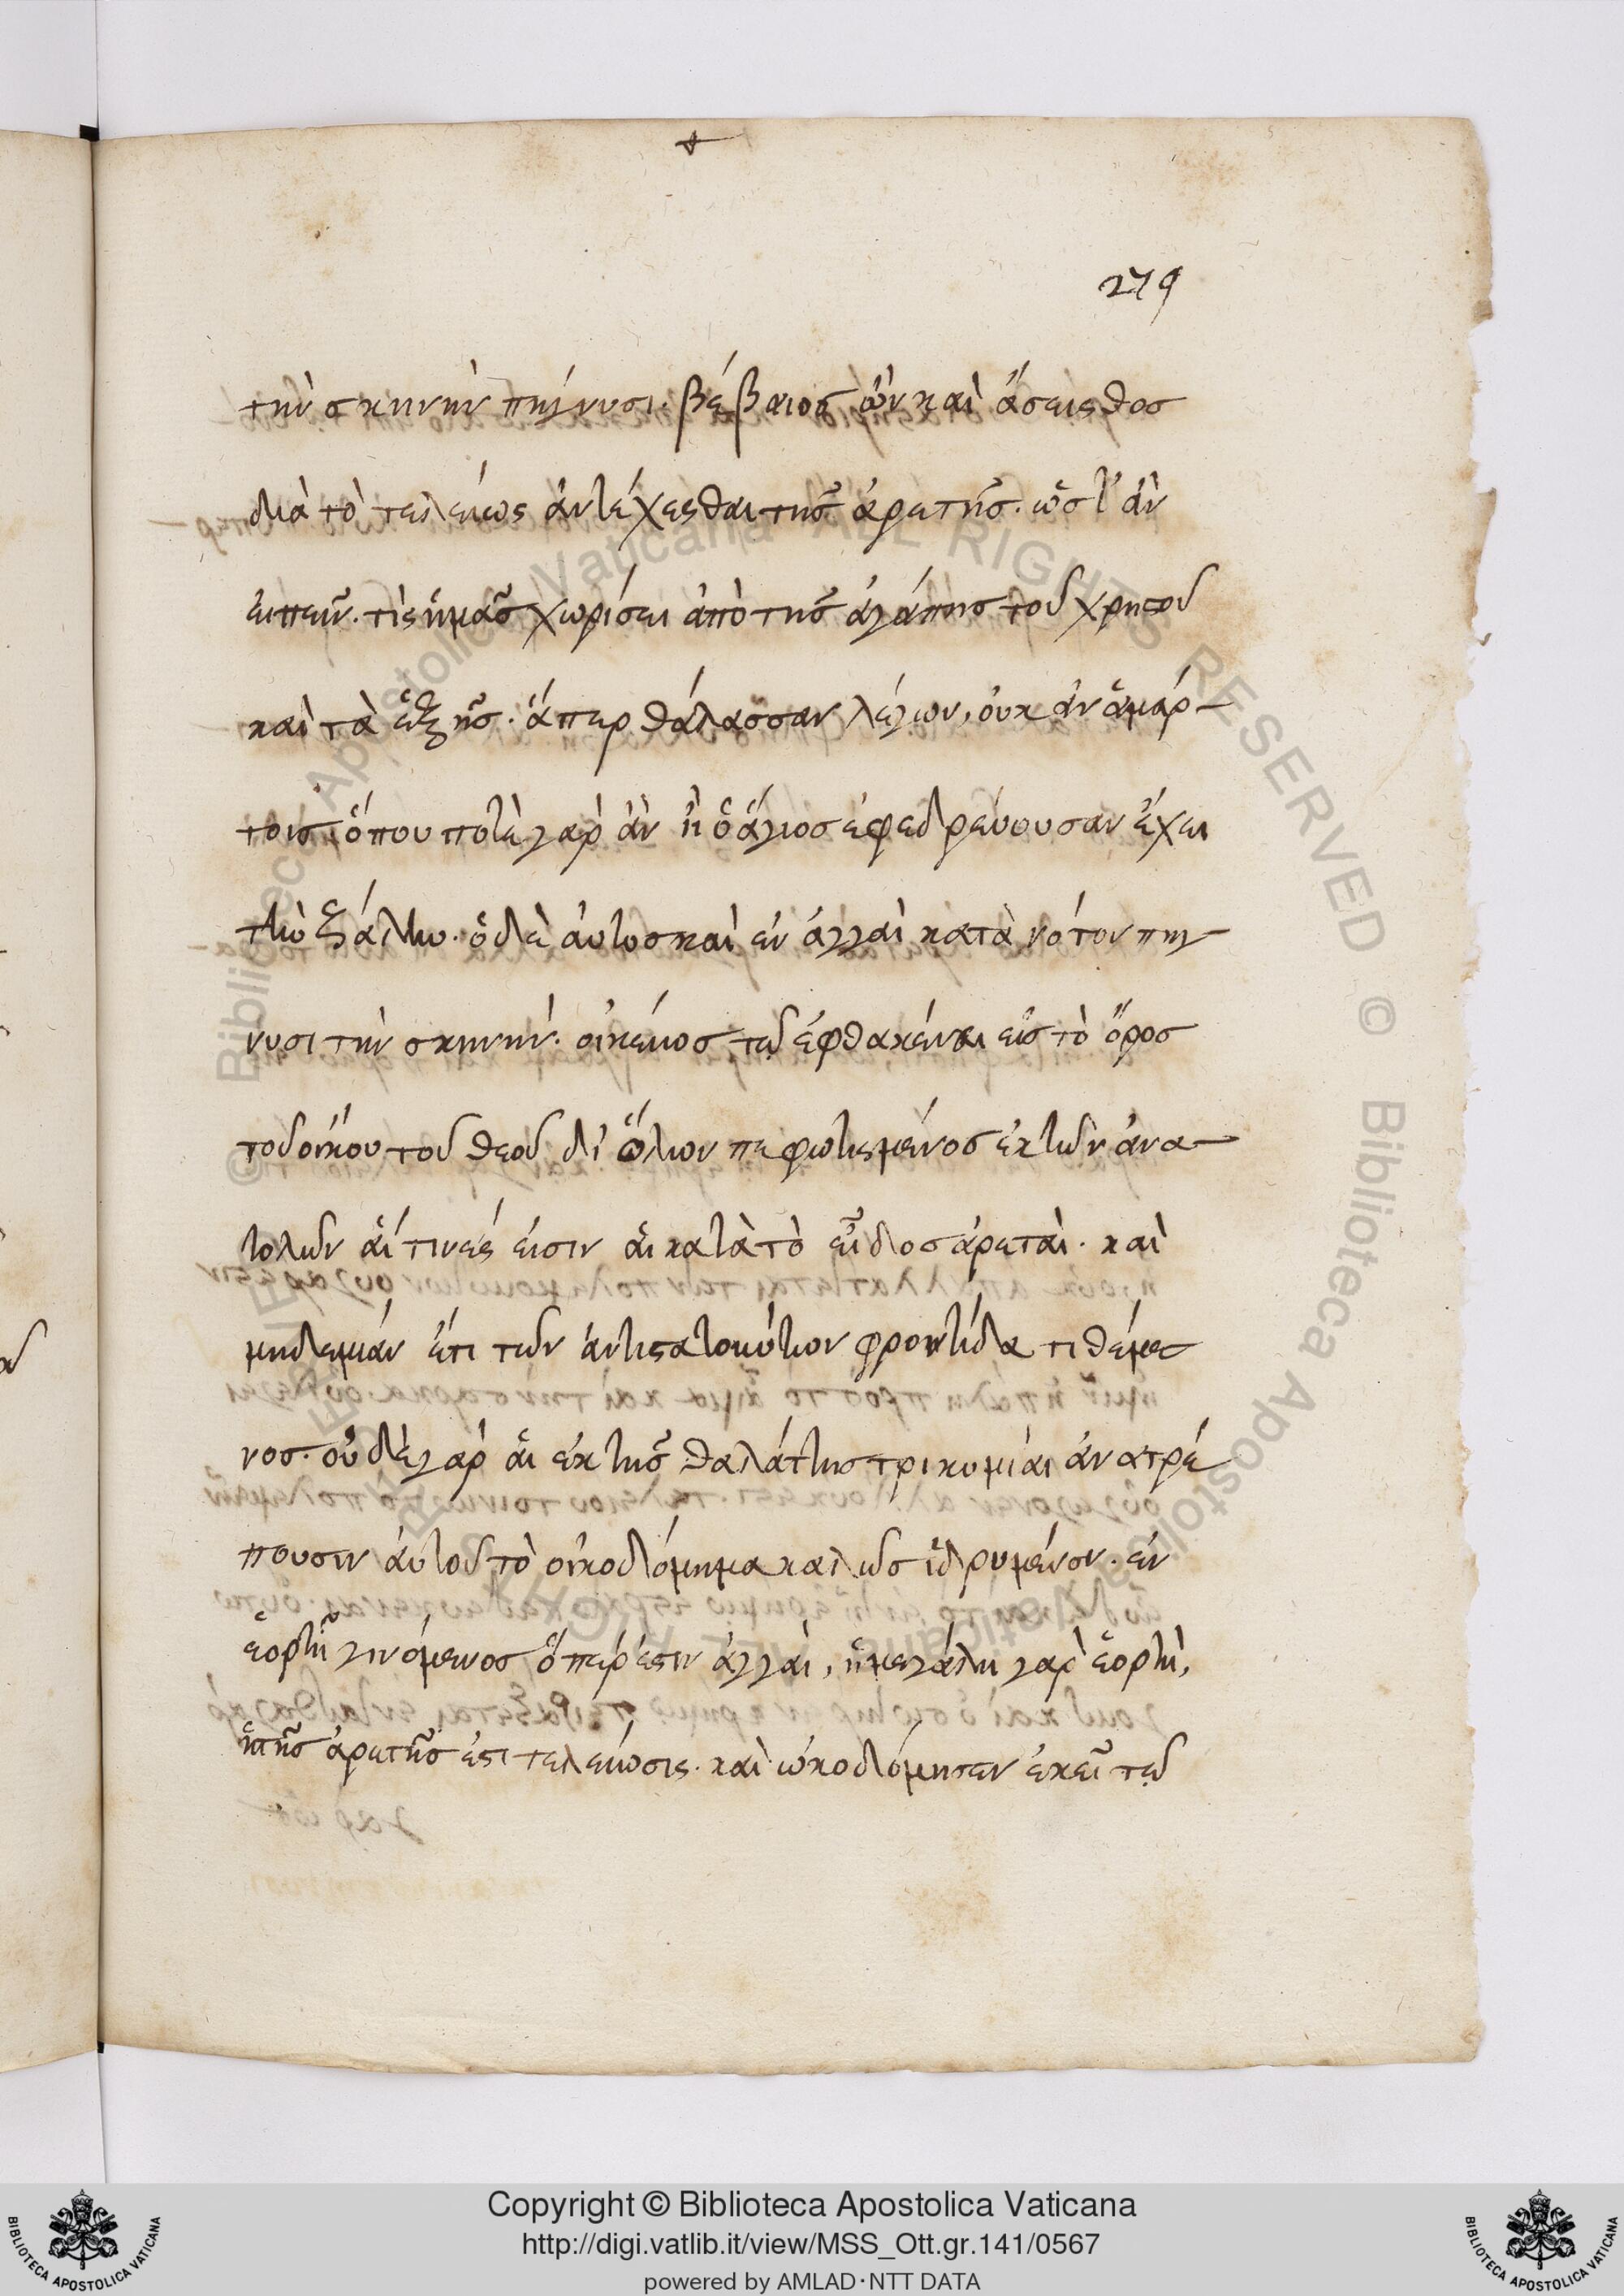 279
τὴν σκηνὴν πήγνυσι. βέβαιος ὢν καὶ ἄσειστος
διὰ τὸ τελείως ἀντέχεσθαι τῆς ἀρετῆς. ὥστ' ἂν
εἰπεῖν. τίς ἡμᾶς χωρίσει ἀπὸ τῆς ἀγάπης τοῦ χριστοῦ
καὶ τὰ ἑξῆς. ἅπερ θάλασσαν λέγων, οὐκ ἂν ἁμάρ-
τοις. ὅπου ποτὲ γὰρ ἂν ᾖ ὁ ἅγιος ἐφεδρεύουσαν ἔχει
τὴν ζάλην. ὁ δὲ αὐτὸς καὶ ἐν ἀγγαὶ κατὰ νότον πήγ-
νυσι τὴν σκηνήν. οἰκείως τῷ ἐφθακέναι εἰς τὸ ὄρος
τοῦ οἴκου τοῦ θεοῦ δι' ὅλων πεφωτισμένος ἐκ τῶν ἀνα-
τολῶν αἵτινές εἰσιν αἱ κατὰ τὸ εἶδος ἀρεταί. καὶ
μηδεμίαν ἔτι τῶν ἀντιστατούντων φροντίδα τιθέμε-
νος. οὐδὲ γὰρ αἱ ἐκ τῆς θαλάττης τρικυμίαι ἀνατρέ
πουσιν αὐτοῦ τὸ οἰκοδόμημα καλῶς ἱδρυμένον. ἐν
ἑορτῇ γινόμενος ὅπερ ἐστιν ἀγγαί, ἡ μεγάλη γὰρ ἑορτὴ,
ἡ τῆς ἀρετῆς ἐστι τελείωσις. καὶ ὠκοδόμησεν ἐκεῖ τῷ
© Biblioteca Apostolica Vaticana ALL RIGHTS RESERVED
Copyright © Biblioteca Apostolica Vaticana
http://digi.vatlib.it/view/MSS_Ott.gr.141/0567
powered by AMLAD·NTT DATA
BIBLIOTECA APOSTOLICA VATICANA
BIBLIOTECA APOSTOLICA VATICANA